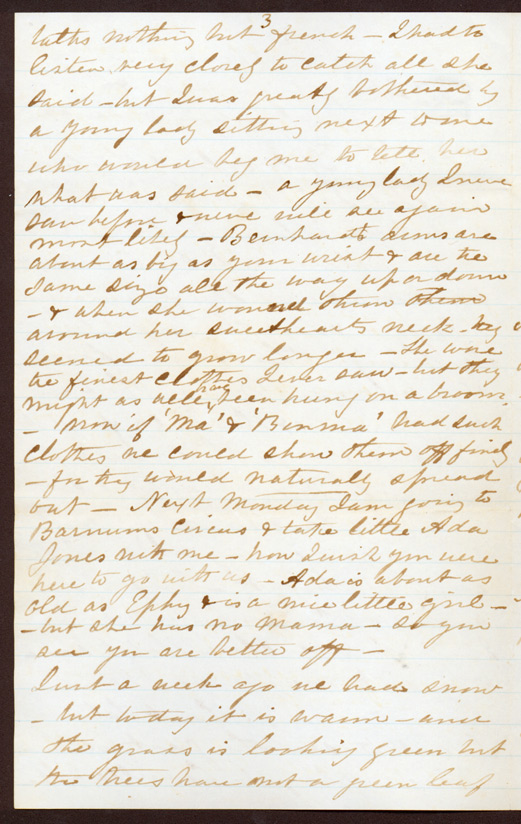 3
talks nothing but french – I had to
listen very closely to catch all she
said – but I was greatly bothered by
a young lady sitting next to me
who would beg me to tell her
what was said – a young lady I never
saw before & never will see again
most likely – Bernhardts arms are
about as big as your wrist & are the
same size all the way up or down
– & when she wound them them
around her sweethearts neck – they
seemed to grow longer – She wore
the finest clothes I ever saw – but they
might as well have been hung on a broom.
– now if 'Ma' & 'Bonma' had such
clothes we could show them off finely
– for they would naturally spread
out – Next Monday I am going to
Barnums Circus & take little Ada
Jones with me – how I wish you were
here to go with us – Ada is about as
old as Ephy & is a nice little girl –
– but she has no Mama – so you
see you are better off –
Just a week ago we had snow
– but today it is warm – and
the grass is looking green but
the trees have not a green leaf